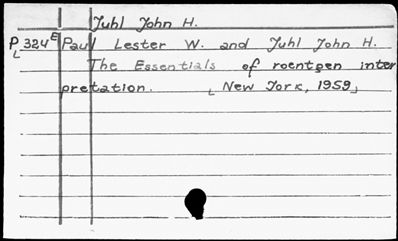 Juhl John H.
P 324E Paul Lester W. and Juhl John H.
L
The Essentials of roentgen inter
pretation. [New Jork, 1959]